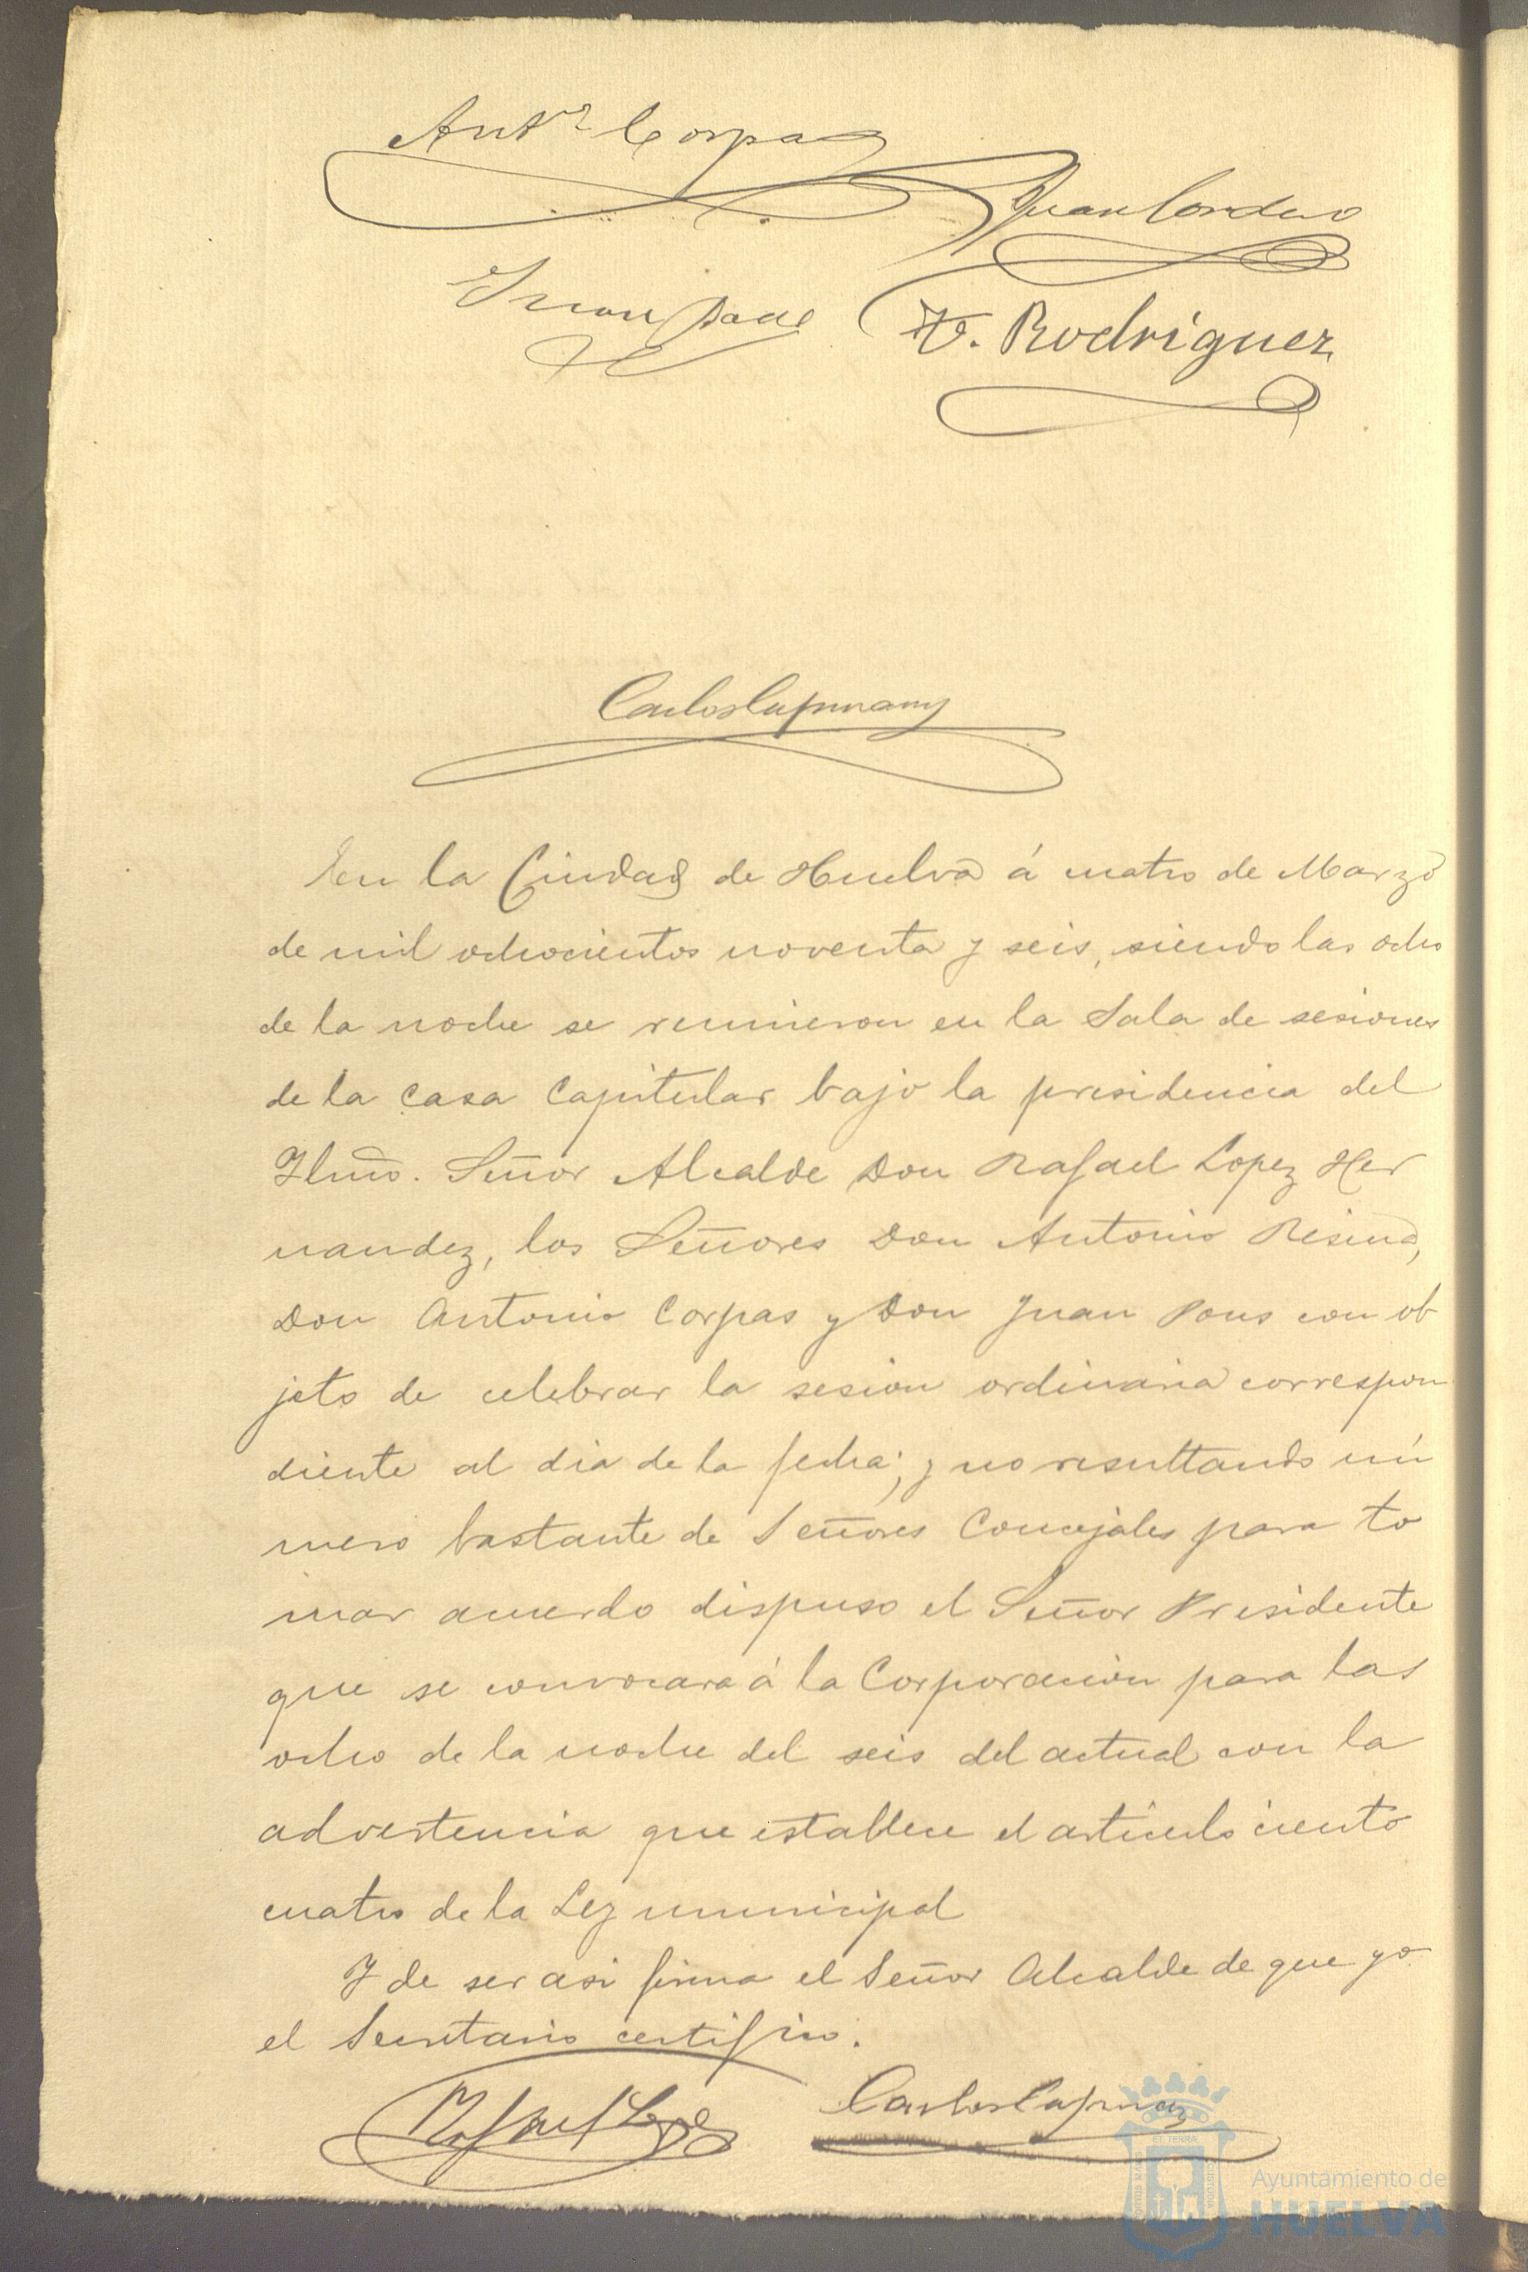 Antº Corpas
Juan Cordero
Juan
V. Rodriguez
Carlos Capmany
En la Ciudad de Huelva á cuatro de Marzo
de mil ochocientos noventa y seis, siendo las ocho
de la noche se reunieron en la Sala de sesiones
de la Casa Capitular bajo la presidencia del
Ilmo. Señor Alcalde Don Rafael Lopez Her
nandez, los Señores Don Antonio Resina,
Don Antonio Corpas y Don Juan Pons con ob
jeto de celebrar la sesion ordinaria correspon
diente al dia de la fecha; y no resultando nú
mero bastante de Señores Concejales para to
mar acuerdo dispuso el Señor Presidente
que se convocara á la Corporacion para las
ocho de la noche del seis del actual con la
advertencia que establece el articulo ciento
cuatro de la Ley municipal
Y de ser asi firma el Señor Alcalde de que yo
el Secretario certifico.
Rafael Lopez
Carlos Capmany
Ayuntamiento de
HUELVA